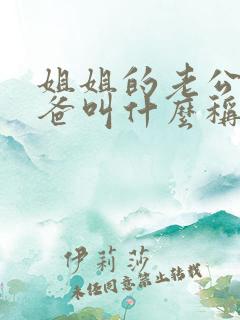 姐姐的老公
爸叫什麼稱
伊莉莎
未经同意禁止转载